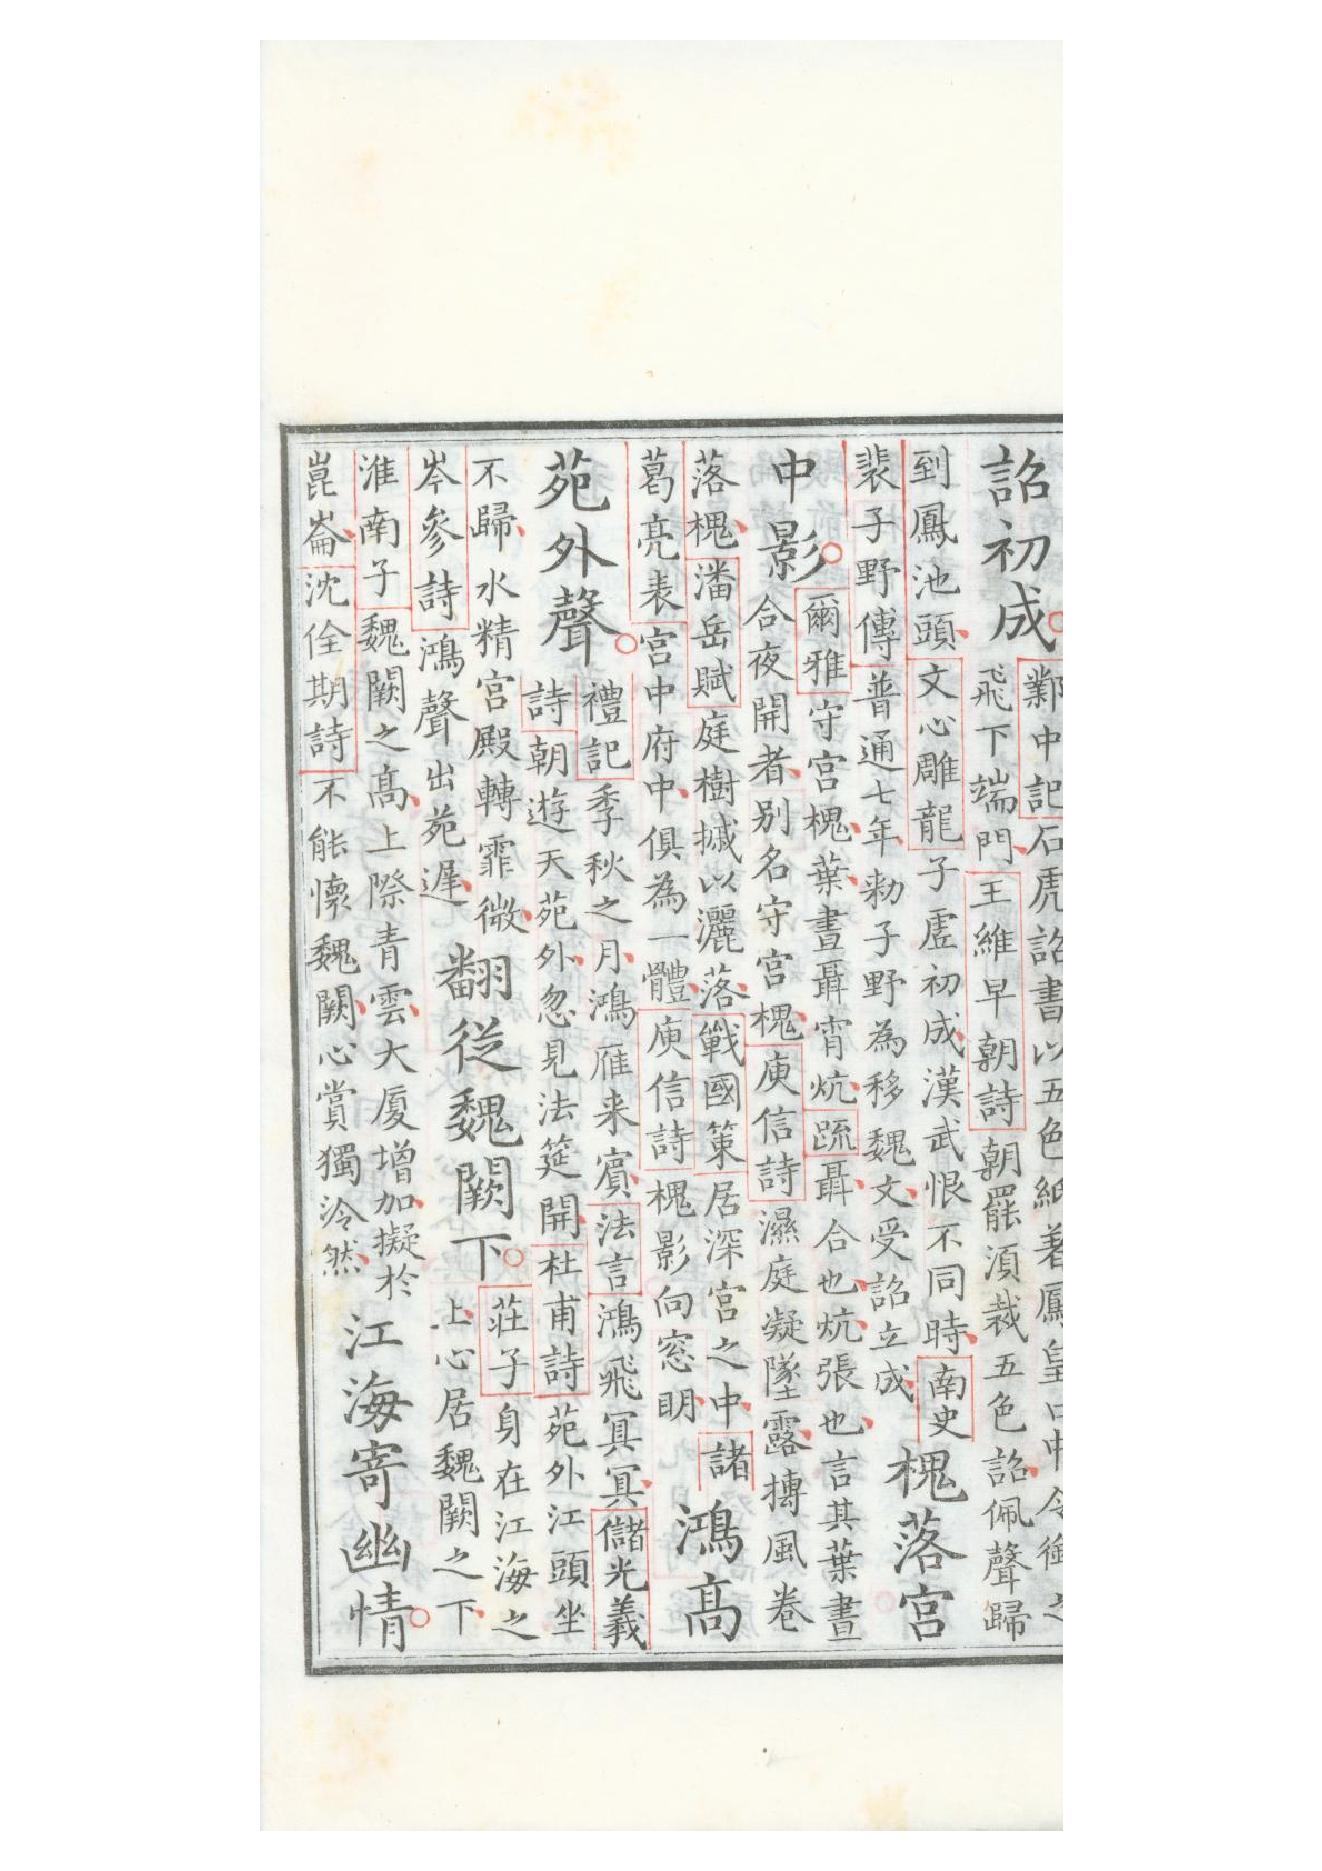 詔初成
鄴中記石虎詔書以五色紙著鳳皇口中令銜之
飛下端門王維早朝詩朝罷須裁五色詔佩聲歸
到鳳池頭文心雕龍子虛初成漢武恨不同時南史
裴子野傳普通七年勅子野為移魏文受詔立成
槐落宮
中影
爾雅守宮槐葉晝聶宵炕疏聶合也炕張也言其葉晝
合夜開者別名守宮槐庾信詩濕庭凝墜露摶風卷
落槐潘岳賦庭樹摵以灑落戰國策居深宮之中諸
葛亮表宮中府中俱為一體庾信詩槐影向窓明
鴻高
苑外聲
禮記季秋之月鴻雁来賓法言鴻飛冥冥儲光羲
詩朝遊天苑外忽見法筵開杜甫詩苑外江頭坐
不歸水精宮殿轉霏微
岑參詩鴻聲出苑遲
翻從魏闕下
莊子身在江海之
上心居魏闕之下
淮南子魏闕之高上際青雲大廈增加擬於
崑崙沈佺期詩不能懷魏闕心賞獨泠然
江海寄幽情